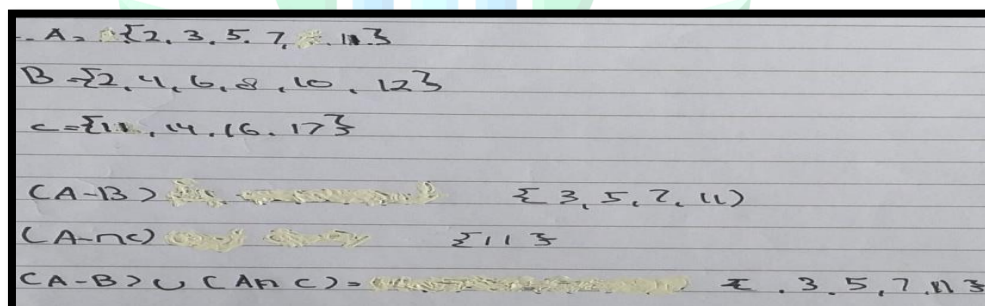 A = {2, 3, 5, 7, 11}
B = {2, 4, 6, 8, 10, 12}
C = {11, 14, 16, 17}
(A-B) {3, 5, 7, 11)
(A-∩C) {11}
(A-B) ∪ (A∩C) = { , 3, 5, 7, 11}